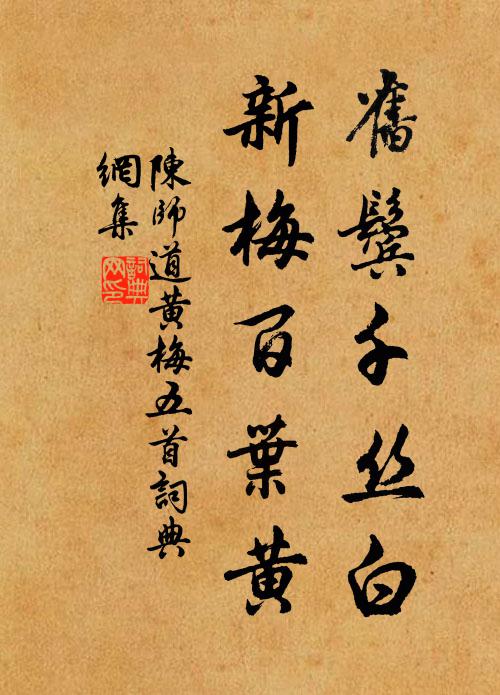 舊鬢千丝白
新梅百葉黄
陳師道黄梅五首詞典
網集
詞典
网印